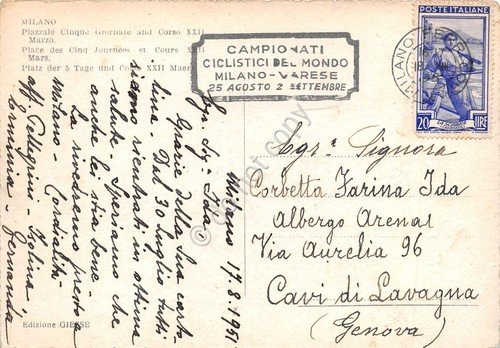 MILANO
Piazzale Cinque Giornate and Corso XXII
Marzo.
Place des Cinq Journées et Cours XXII
Mars.
Platz der 5 Tage und Corso XXII Maerz
CAMPIONATI
CICLISTICI DEL MONDO
MILANO - VARESE
25 AGOSTO 2 SETTEMBRE
POSTE ITALIANE
20 LIRE
MILANO
Milano 17.8.1951
Sig.ra Ida,
Grazie della Sua cart-
lina. Dal 30 luglio tutti
siamo rientrati in ottima
salute. Speriamo che
anche lei stia bene
La rivedremo presto a
Milano - Cordialità
aff. Pellegrini - Isolina
Erminia - Germania
Egra Signora
Corbetta Farina Ida
Albergo Arenal
Via Aurelia 96
Cavi di Lavagna
(Genova)
Edizione GIESSE